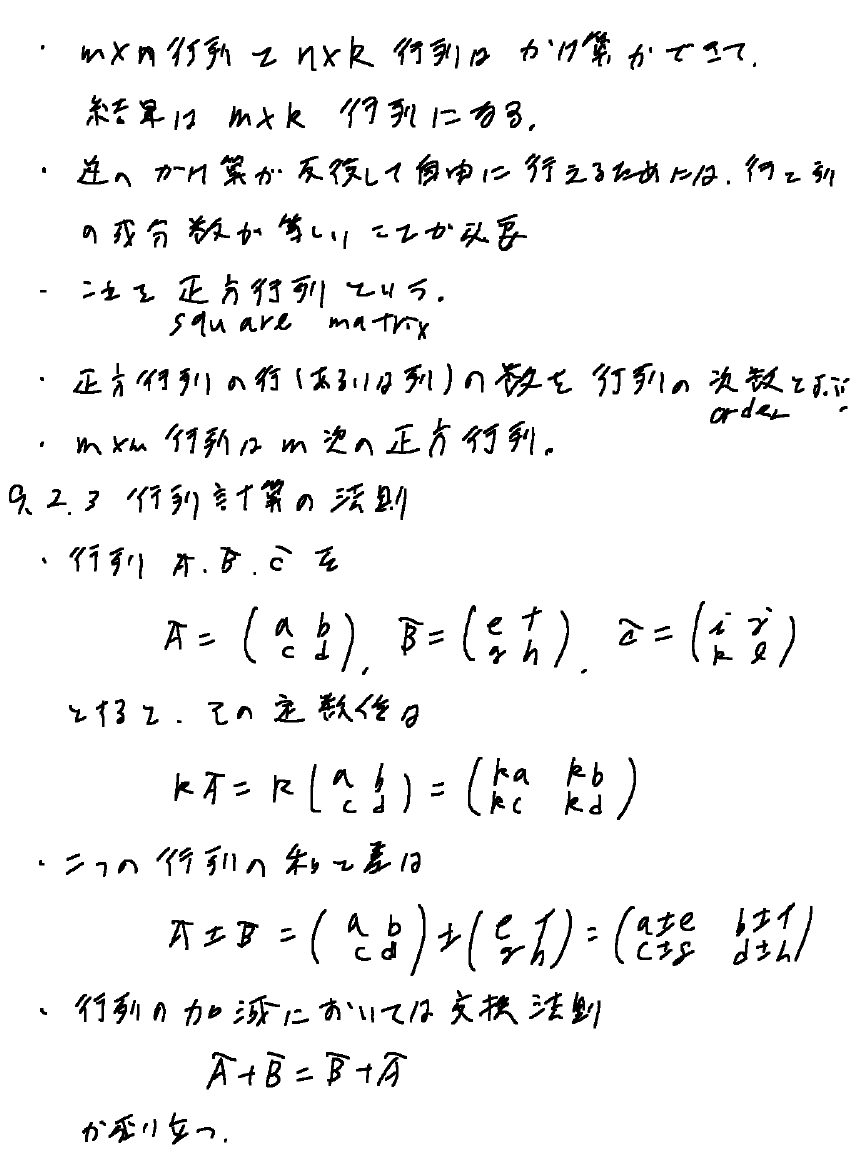 ・ m×n 行列と n×k 行列は かけ算ができて、
結果は m×k 行列になる。
・ 逆の かけ算が 反復して自由に 行えるためには、行と列
の成分数が等しいことが必要
・ これを 正方行列という。
square matrix
・ 正方行列の行(あるいは列)の数を 行列の 次数とよぶ。
order
・ m×m 行列は m 次の正方行列。
9.2.3 行列計算の法則
・行列 A、B、C を
A = ( a b c d )、 B = ( e f g h )、 C = ( i j k l )
とすると、その定数倍は
kA = k ( a b c d ) = ( ka kb kc kd )
・二つの行列の和と差は
A ± B = ( a b c d ) ± ( e f g h ) = ( a±e b±f c±g d±h )
・ 行列の加減においては交換法則
A + B = B + A
が成り立つ。